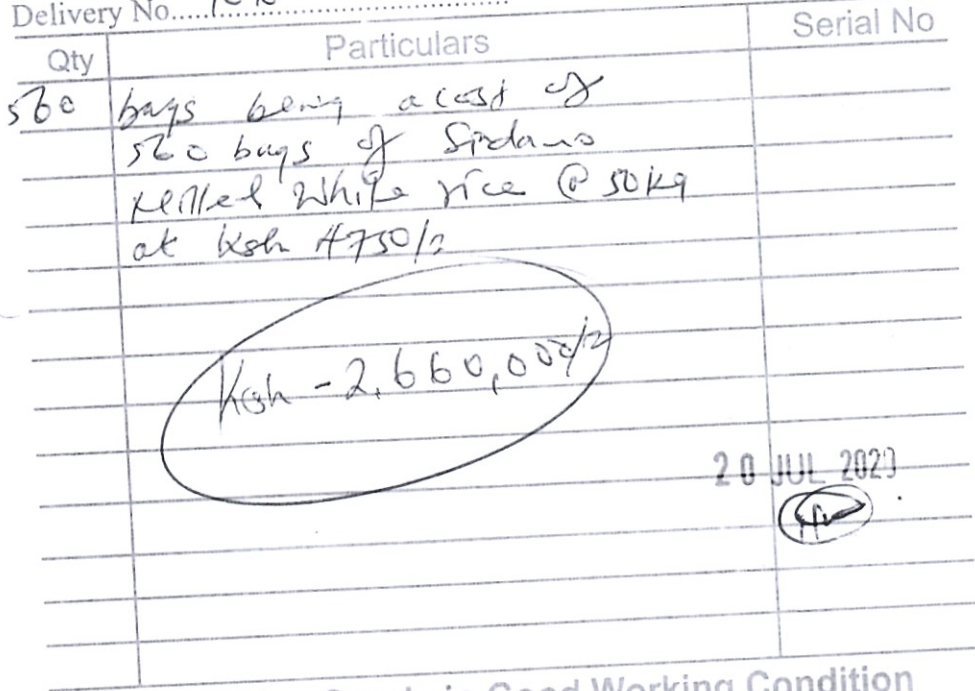 Delivery No.
Qty Particulars Serial No
560 bags being a cost of
560 bags of Sindano
Milled White rice @ 50kg
at Ksh 4750/=
Ksh - 2,660,000/=
20 JUL 2020
Good Working Condition